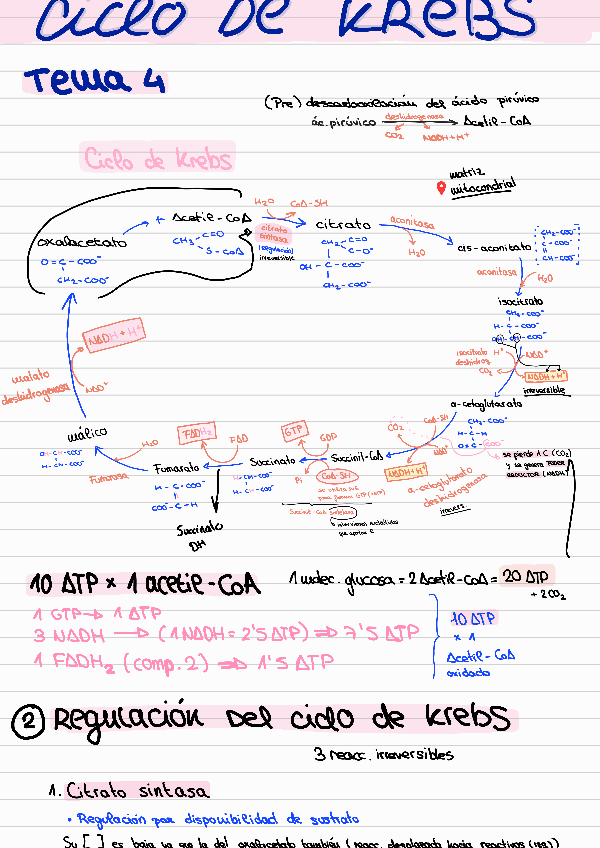 CICLO DE KREBS
Tema 4
(Pre) descarboxilación del ácido pirúvico
ác. pirúvico deshidrogenasa Acetil-CoA
CO2 NADH+H+
Ciclo de Krebs
matriz
mitocondrial
oxalacetato
O=C-COO-
CH2-COO-
+ Acetil-CoA
CH3-C=O
S-CoA
H2O CoA-SH
citrato
sintasa
irreversible
citrato
CH2-C=O
C-O-
OH-C-COO-
CH2-COO-
aconitasa
H2O
cis-aconitato
CH2-COO-
C-COO-
CH-COO-
aconitasa
H2O
isocitrato
CH2-COO-
H-C-COO-
isocitrato
deshidrog.
H+
CO2
NAD+
NADH+H+
irreversible
α-cetoglutarato
CH2-COO-
H-C-H
O=C-COO-
se pierde 1C (CO2)
y se genera PODER
REDUCTOR (NADH)
CoA-SH
CO2
NAD+
NADH+H+
α-cetoglutarato
deshidrogenasa
irrevers.
Succinil-CoA
GTP GDP
Pi
CoA-SH
Succinil CoA sintetasa
Succinato
CH-COO-
CH-COO-
FADH2 FAD
Succinato
DH
Fumarato
H-C-COO-
COO-C-H
H2O
Fumarasa
málico
OH-CH-COO-
H-CH-COO-
malato
deshidrogenasa
NAD+
NADH+H+
10 ATP x 1 acetil-CoA
1 molec. glucosa = 2 Acetil-CoA = 20 ATP
+ 2CO2
1 GTP → 1 ATP
3 NADH → (1NADH = 2'5 ATP) ⇒ 7'5 ATP
1 FADH2 (comp. 2) ⇒ 1'5 ATP
10 ATP
x 1
Acetil-CoA
oxidado
2 Regulación del ciclo de Krebs
3 reacc. irreversibles
1. Citrato sintasa
• Regulación por disponibilidad de sustrato
Su [ ] es baja ya que la del oxalacetato también (reacc. desplazada hacia reactivos